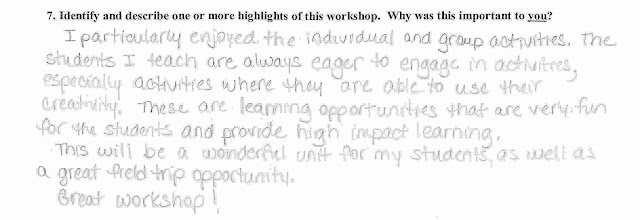 7. Identify and describe one or more highlights of this workshop. Why was this important to you?
I particularly enjoyed the individual and group activities. The
students I teach are always eager to engage in activities,
especially activities where they are able to use their
creativity. These are learning opportunities that are very fun
for the students and provide high impact learning.
This will be a wonderful unit for my students, as well as
a great field trip opportunity.
Great workshop!